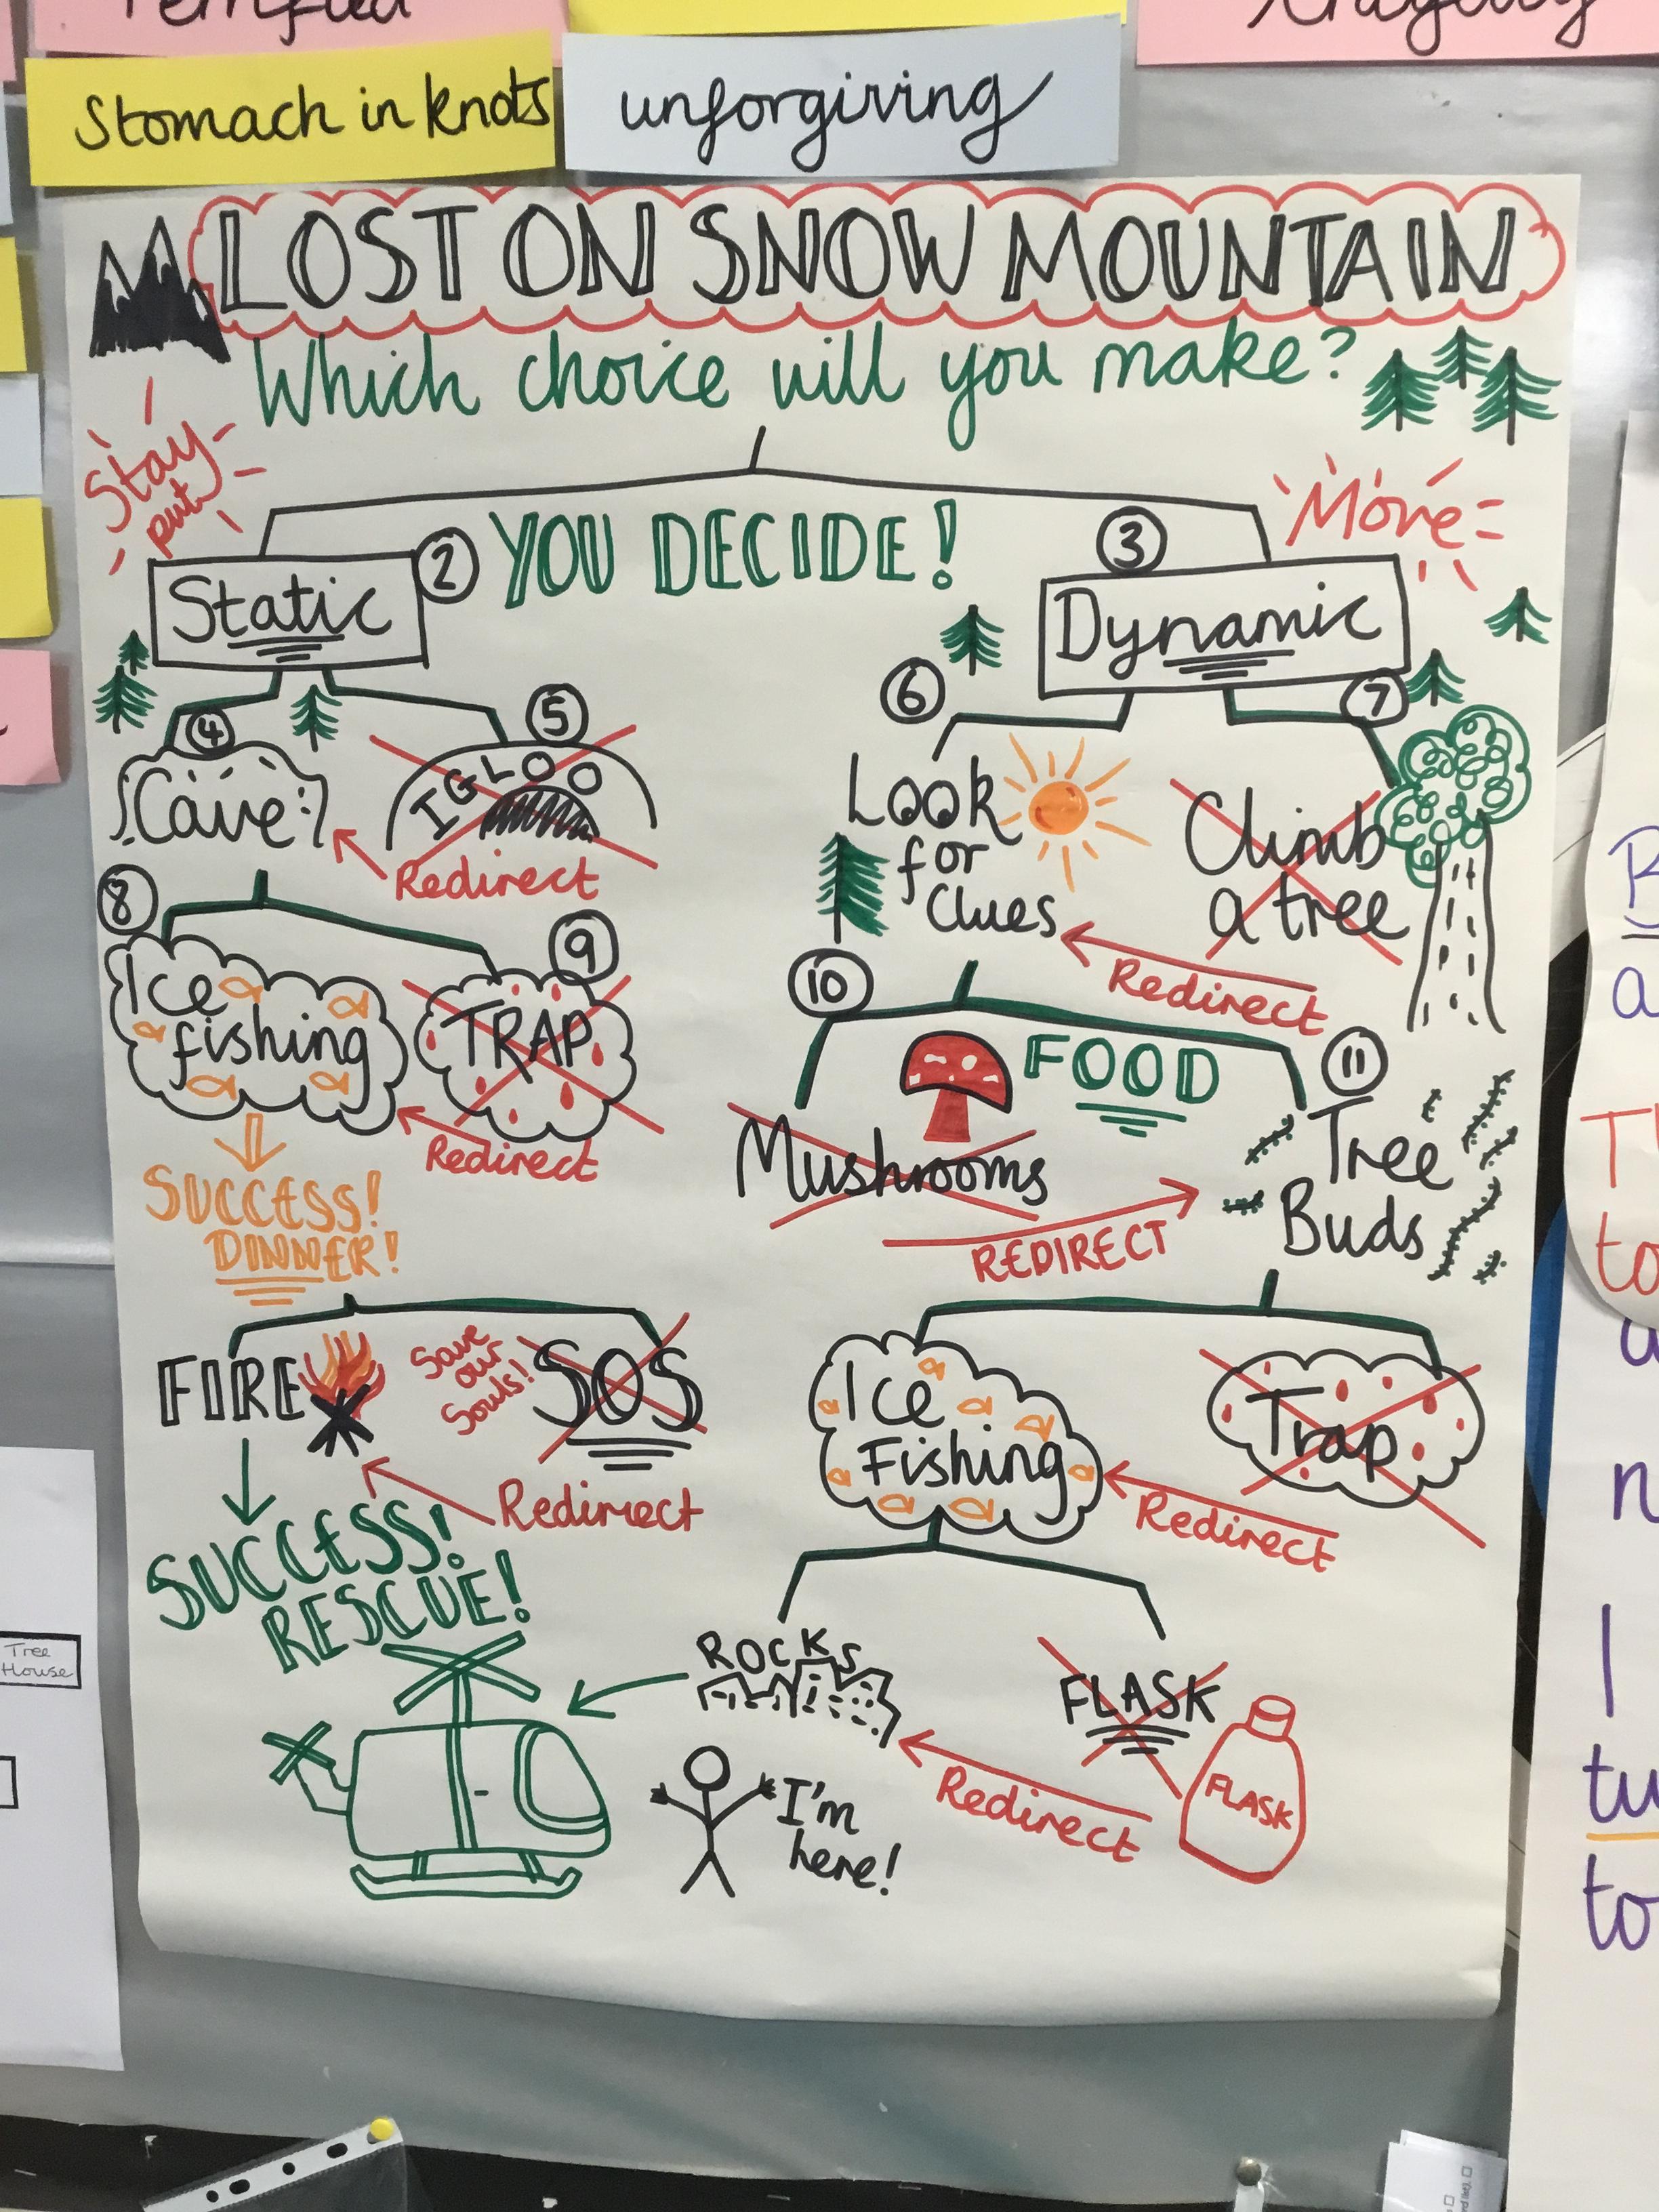 Stomach in knots
unforgiving
LOST ON SNOW MOUNTAIN
Which choice will you make?
Stay
put
YOU DECIDE!
Move
2
Static
3
Dynamic
4
Cave
5
IGLOO
Redirect
6
Look
for
Clues
7
Climb
a tree
Redirect
8
Ice
fishing
9
TRAP
Redirect
SUCCESS!
DINNER!
10
FOOD
11
Mushrooms
Tree
Buds
REDIRECT
FIRE
Save
our
Souls!
SOS
Redirect
SUCCESS!
RESCUE!
Ice
Fishing
Trap
Redirect
ROCKS
FLASK
FLASK
Redirect
I'm
here!
Tree
House
T
to
n
I
tu
to